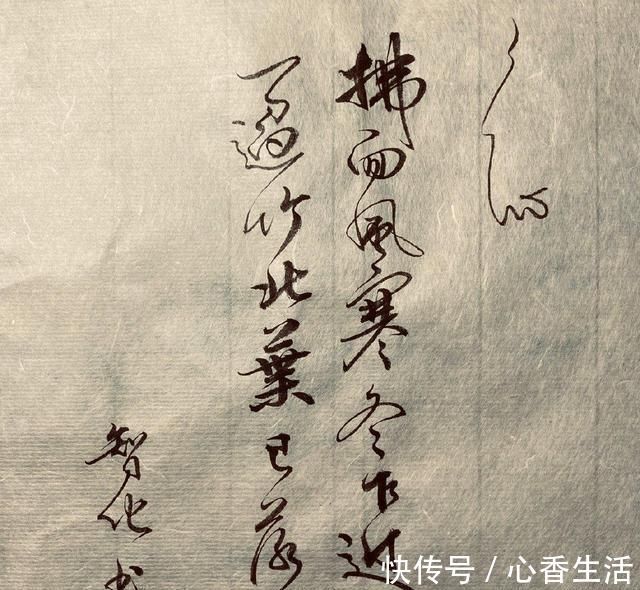 拂面風寒冬乍近
一過竹北葉已落
智化
快传号 / 心香生活